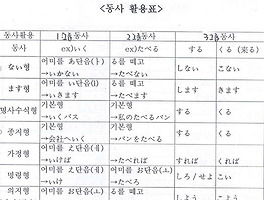 <동사 활용표>
동사활용 1그룹동사 2그룹동사 3그룹동사
동사 ex)いく ex)たべる する くる (来る)
ない형 어미를 あ단음(ㅏ) →いかない る를 떼고 →たべない しない こない
ます형 어미를 い단음(ㅣ) →いきます る를 떼고 →たべます します きます
명사수식형 기본형 →いくバス 기본형 →私のたべるパン する くる
종지형 기본형 →会社へいく 기본형 →パンをたべる する くる
가정형 어미를 え단음(ㅔ) →いけば →たべれば すれば くれば
명령형 어미를 え단음(ㅔ) →いけ 어미를 お단음(ㅗ) →たべろ しろ / せよ こい
의지형 어미를 お단음(ㅗ) る를 떼고 しよう こよう